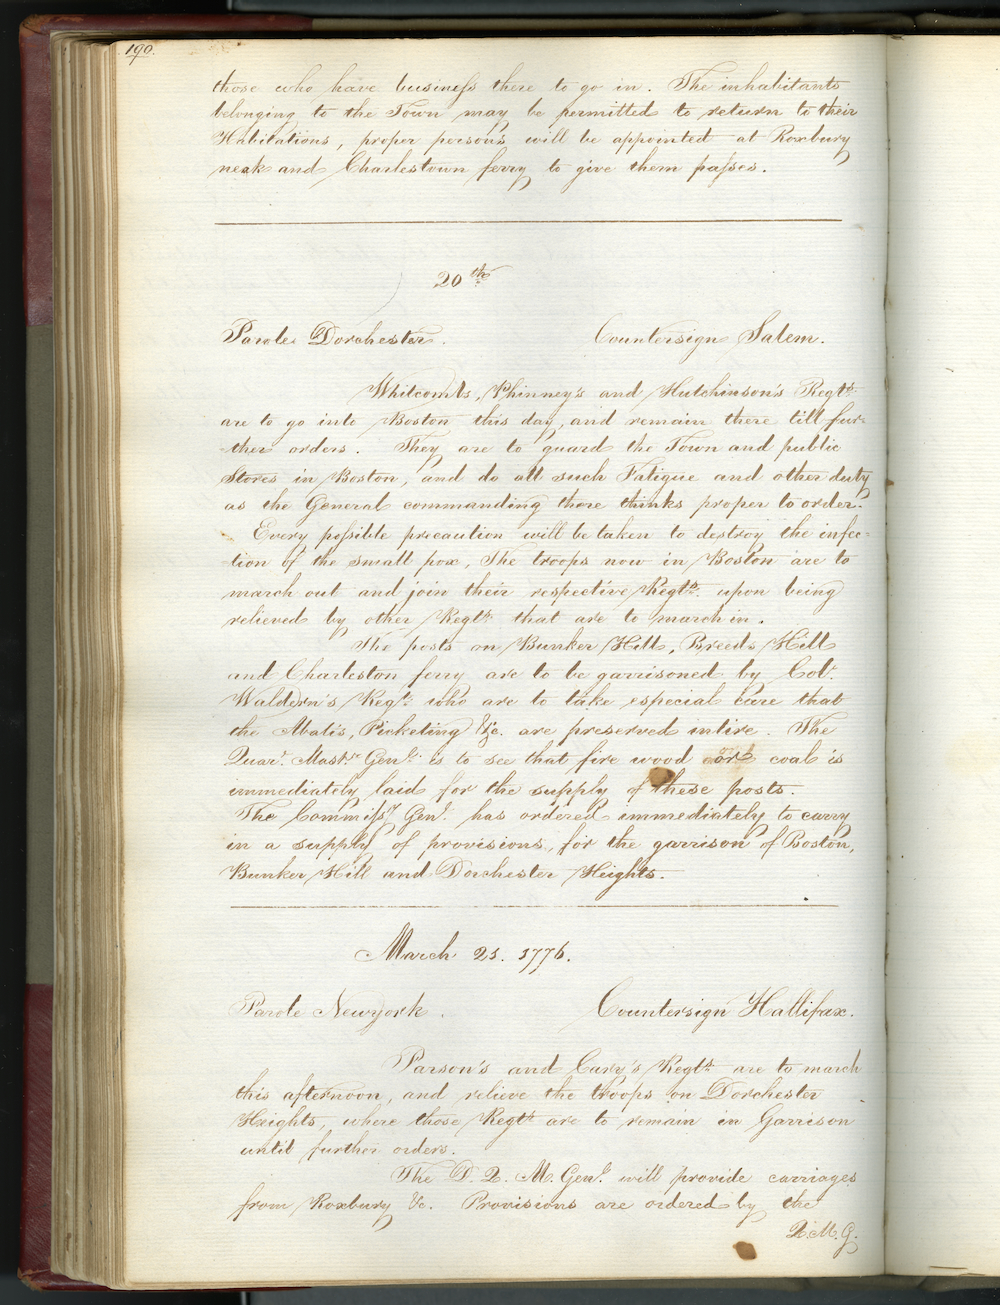 190.
those who have business there to go in. The inhabitants
belonging to the Town may be permitted to return to their
Habitations, proper persons will be appointed at Roxbury
neak and Charlestown ferry to give them passes.
20th
Parole Dorchester.
Countersign Salem.
Whitcombs, Phinney's and Hutchinson's Regts.
are to go into Boston this day, and remain there till fur-
ther orders. They are to guard the Town and public
Stores in Boston, and do all such Fatigue and other duty
as the General commanding there thinks proper to order.
Every possible precaution will be taken to destroy the infec-
tion of the small pox, The troops now in Boston are to
march out and join their respective Regts. upon being
relieved by other Regts. that are to march in.
The posts on Bunker Hill, Breeds Hill
and Charleston ferry are to be garrisoned by Col.
Waldern's Regt. who are to take especial care that
the Abatis, Picketing &c. are preserved intire. The
Quar. Mastr. Genl. is to see that fire wood or coal is
immediately laid for the supply of these posts.
The Commissy Genl. has ordered immediately to carry
in a supply of provisions, for the garrison of Boston,
Bunker Hill and Dorchester Heights.
March 21. 1776.
Parole Newyork.
Countersign Hallifax.
Parson's and Cary's Regts. are to march
this afternoon, and relieve the troops on Dorchester
Heights, where those Regts. are to remain in Garrison
until further orders.
The D. Q. M. Genl. will provide carriages
from Roxbury &c. Provisions are ordered by the
Q.M.G.